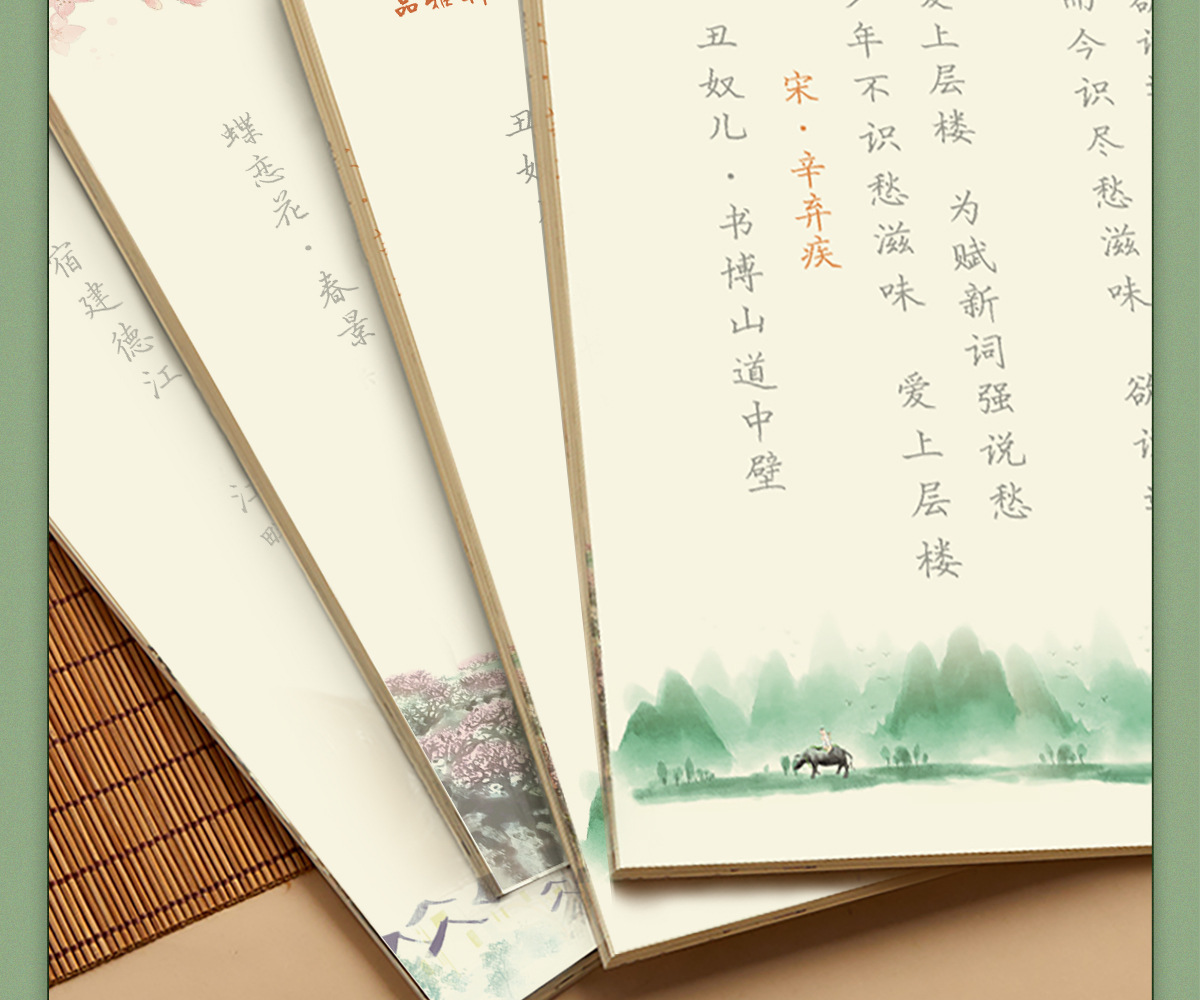 宿建德江
江
蝶恋花·春景
丑奴
丑奴儿·书博山道中壁
宋·辛弃疾
年不识愁滋味 爱上层楼
爱上层楼 为赋新词强说愁
而今识尽愁滋味